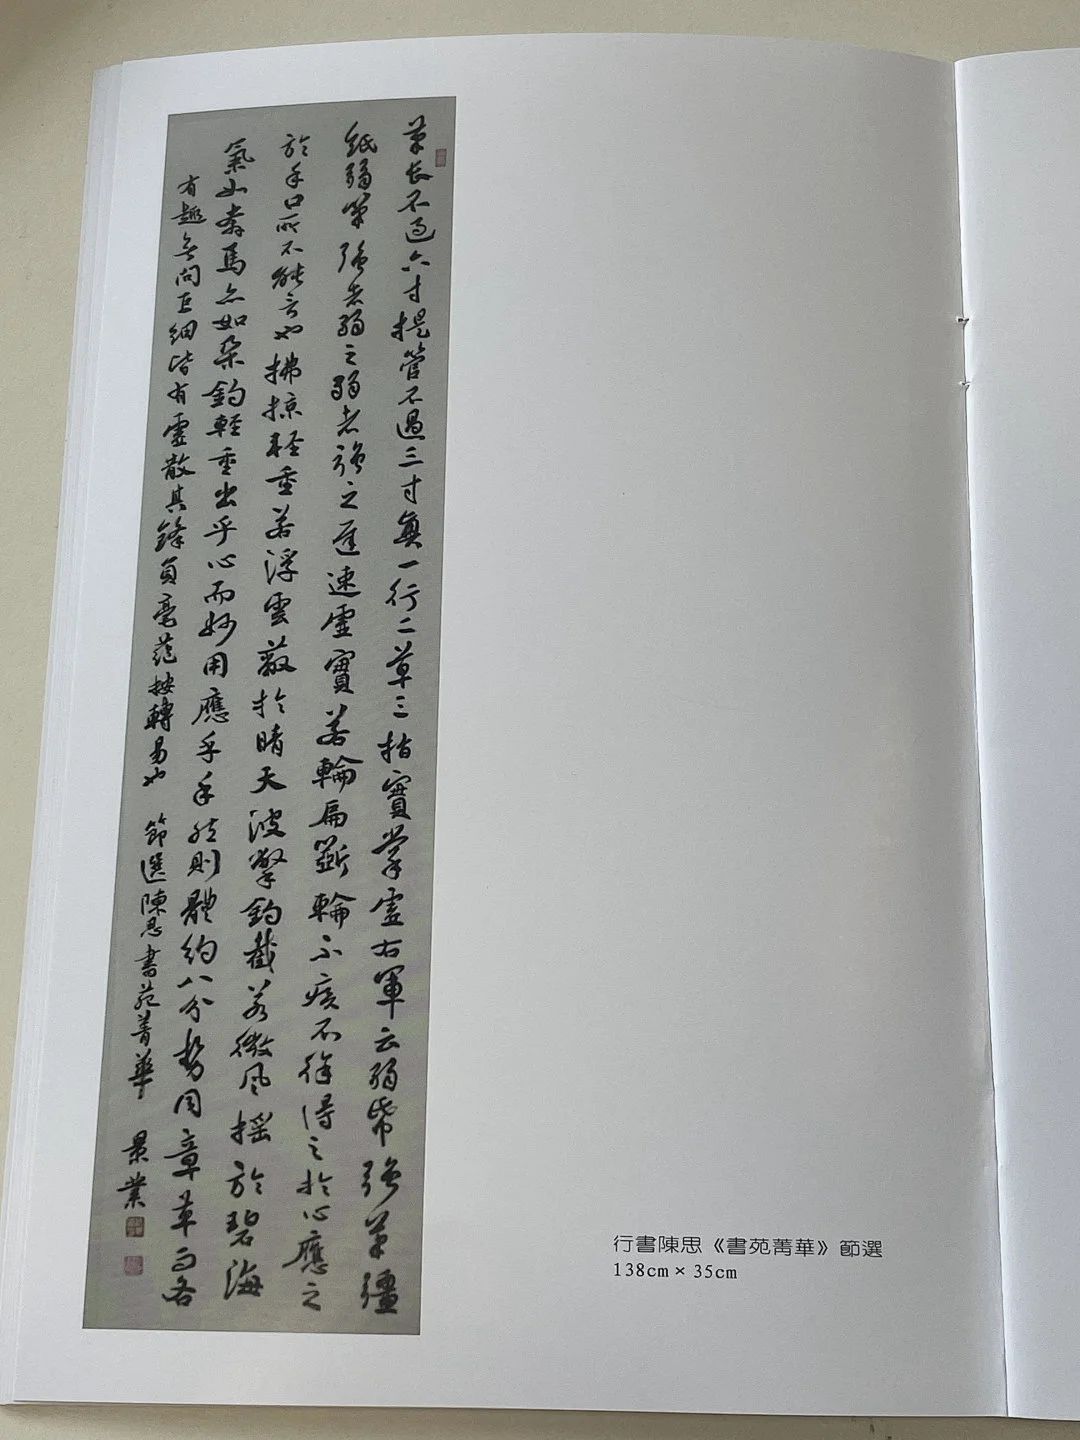 筆長不過六寸捉管不過三寸真一行二草三指實掌虛右軍云弱紙強筆彊
紙弱筆強者弱之弱者強之遲速虛實若輪扁斵輪不疾不徐得之於心應之
於手口所不能言也拂掠輕重若浮雲蔽於晴天波撆鈎截若微風搖於碧海
氣如奔馬亦如朵鈎輕重出乎心而妙用應乎手然則體約八分勢同章草而各
有趣無問巨細皆有虛散其鋒員毫蕝按轉易也 節選陳思書苑菁華 景業
行書陳思《書苑菁華》節選
138cm×35cm